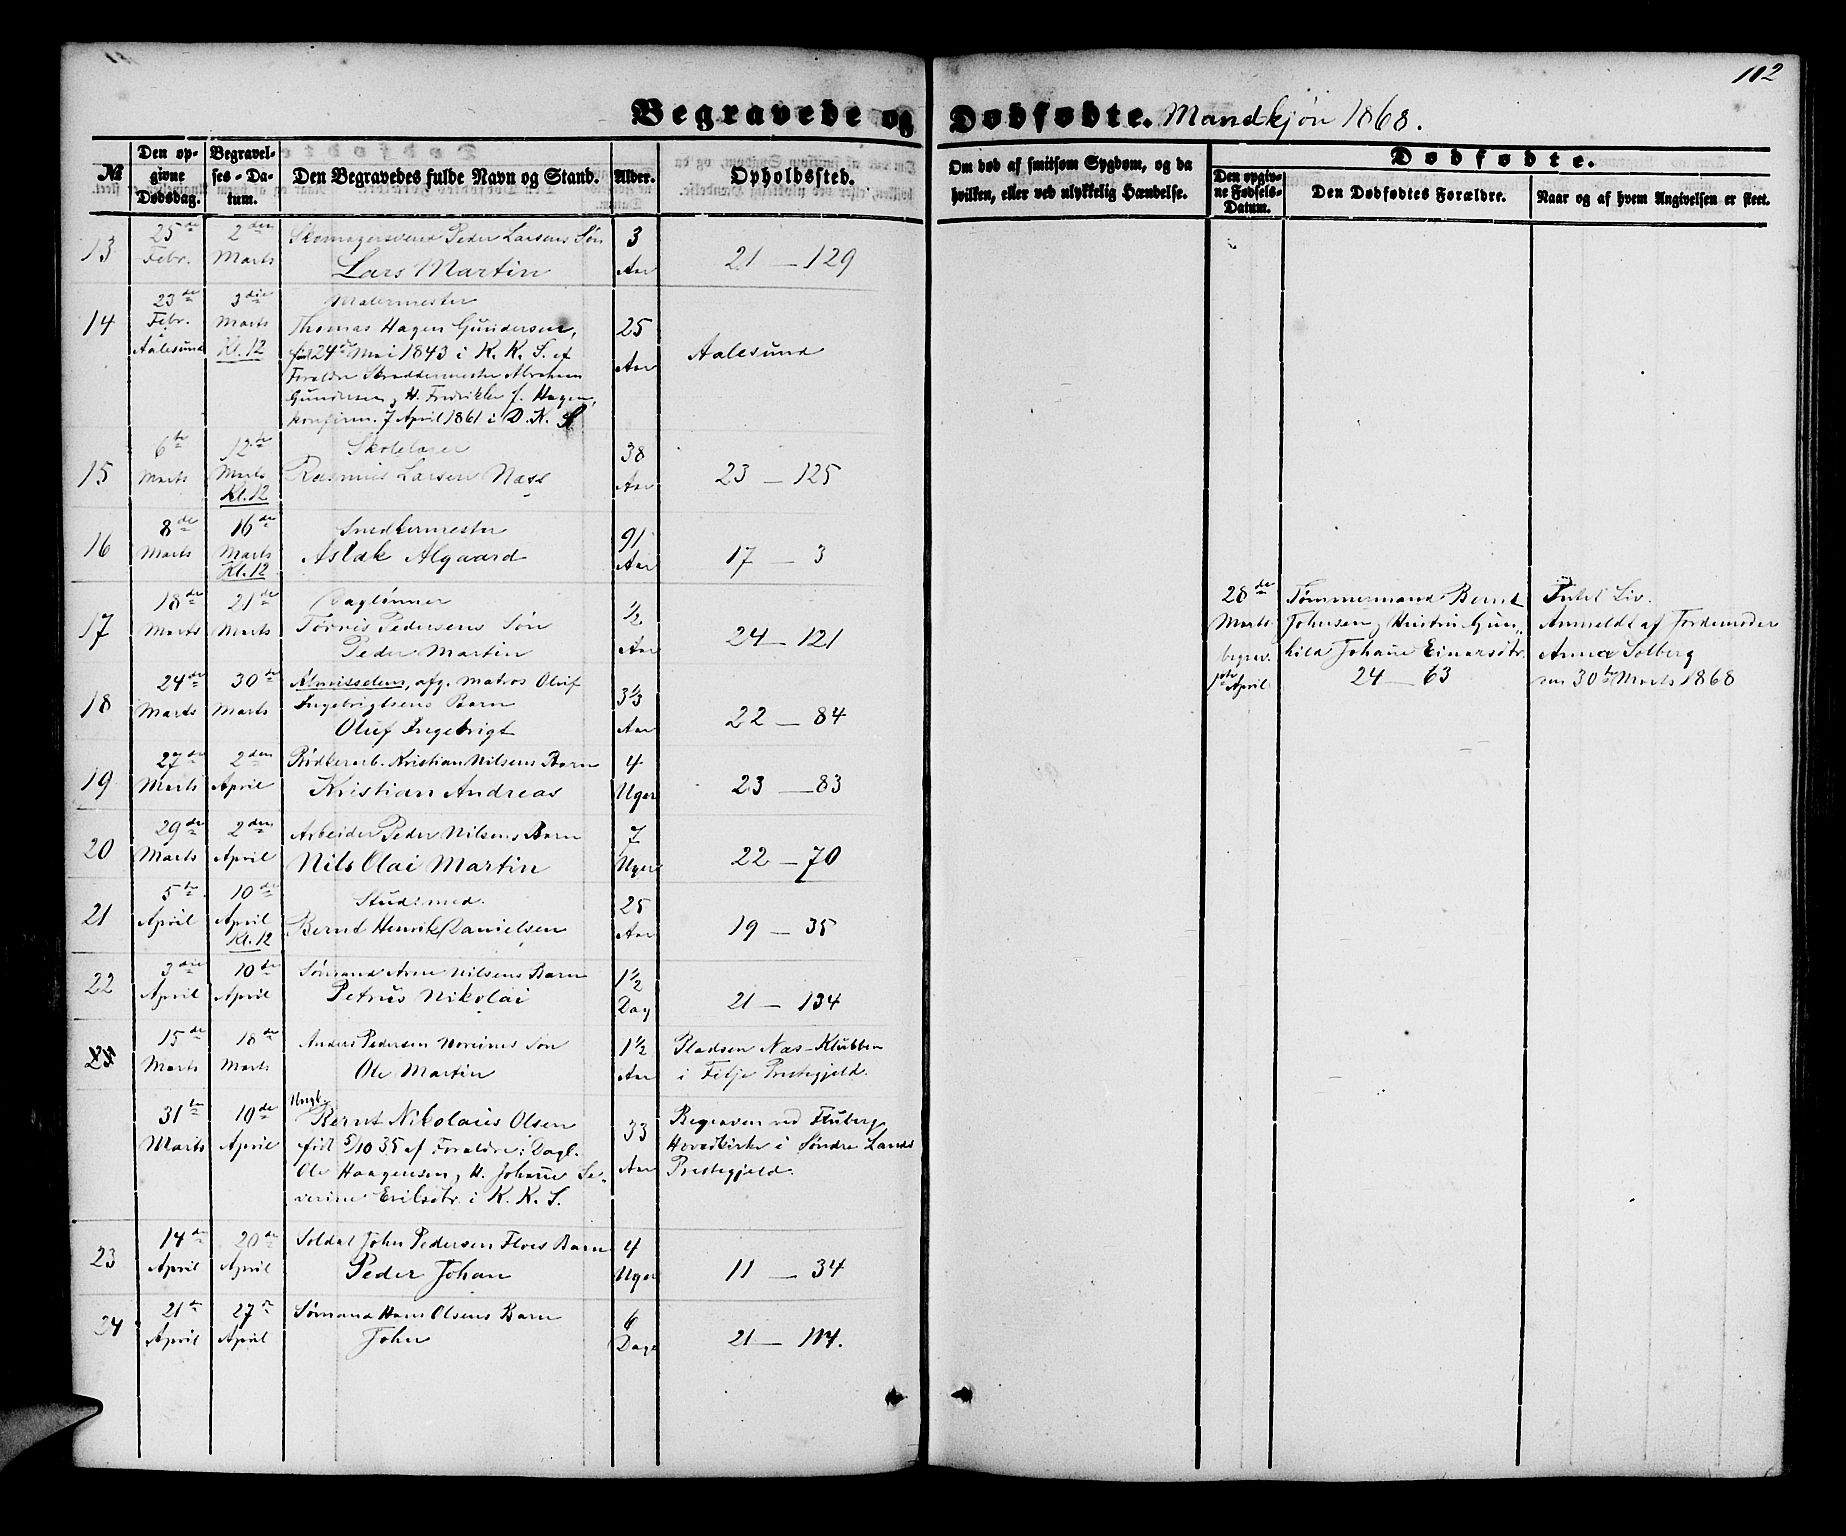 112
Begravede og Dødfødte. Mandkjøn 1868.
№
Den opgivne Dødsdag.
Begravelses-Datum.
Den Begravedes fulde Navn og Stand.
Alder.
Opholdssted.
Om død af smitsom Sygdom, og da
hvilken, eller ved ulykkelig Hændelse.
Dødfødte.
Den opgivne Fødsels-Datum.
Den Dødfødtes Forældre.
Naar og af hvem Angivelsen er skeet.
13
25de Febr.
2den Marts
Skomagersvend Peder Larsens Søn
Lars Martin
3 Aar
21 — 129
14
23de Febr. i Aalesund
3die Marts Kl. 12
Malermester
Thomas Hagen Gundersen,
født 24de Mai 1843 i K. K. S. af
Forældre Skræddermester Abraham
Gundersen, H. Fredrikke f. Hagen,
konfirm. 7 April 1861 i D. K. S
25 Aar
Aalesund
15
6te Marts
12te Marts Kl. 12
Skolelærer
Rasmus Larsen Næss
38 Aar
23 — 125
16
8de Marts
16de Marts Kl. 12
Snedkermester
Aslak Algaard
91 Aar
17 — 3
17
18de Marts
21de Marts
Daglønner
Tørris Pedersens Søn
Peder Martin
½ Aar
24 — 121
28de Marts begrav. 1ste April
Tømmermand Bernt
Johnsen, Hustru Gun-
hild Johane Einarsdtr.
24 — 63
Intet Liv.
Anmeldt af Jordemoder
Anna Solberg
den 30te Marts 1868
18
24de Marts
30te Marts
Almisselem, afg. Matros Oluf
Ingebrigtsens Barn
Oluf Ingebrigt
3⅓ Aar
22 — 84
19
27de Marts
2den April
Bødkerarb. Kristian Nilsens Barn
Kristian Andreas
4 Uger
23 — 83
20
29de Marts
2den April
Arbeider Peder Nilsens Barn
Nils Olai Martin
7 Uger
22 — 70
21
5te April
10de April Kl. 12
Stud. med.
Bernt Henrik Danielsen
25 Aar
19 — 35
22
3die April
10de April
Sømand Arne Nilsens Barn
Petrus Nikolai
1½ Dag
21 — 134
15de Marts
18de Marts
Anders Pedersen Søn
Ole Martin
1½ Aar
Pladsen Næs-Klubben
i Præstegjeld.
31te Marts
10de April
Ungk.
Bernt Nikolaus Olsen
født 5/10 35 af Forældre: Dagl.
Ole Haagensen, H. Johane Se-
verine Eriksdtr. i K. K. S.
33 Aar
Begraven ved Fluberg
Hovedkirke i Søndre Lands
Prestegjeld.
23
14de April
20de April
Soldat John Pedersen Floes Barn
Peder Johan
4 Uger
11 — 34
24
21de April
27de April
Sømand Hans Olsens Barn
John
6 Dage
21 — 114.